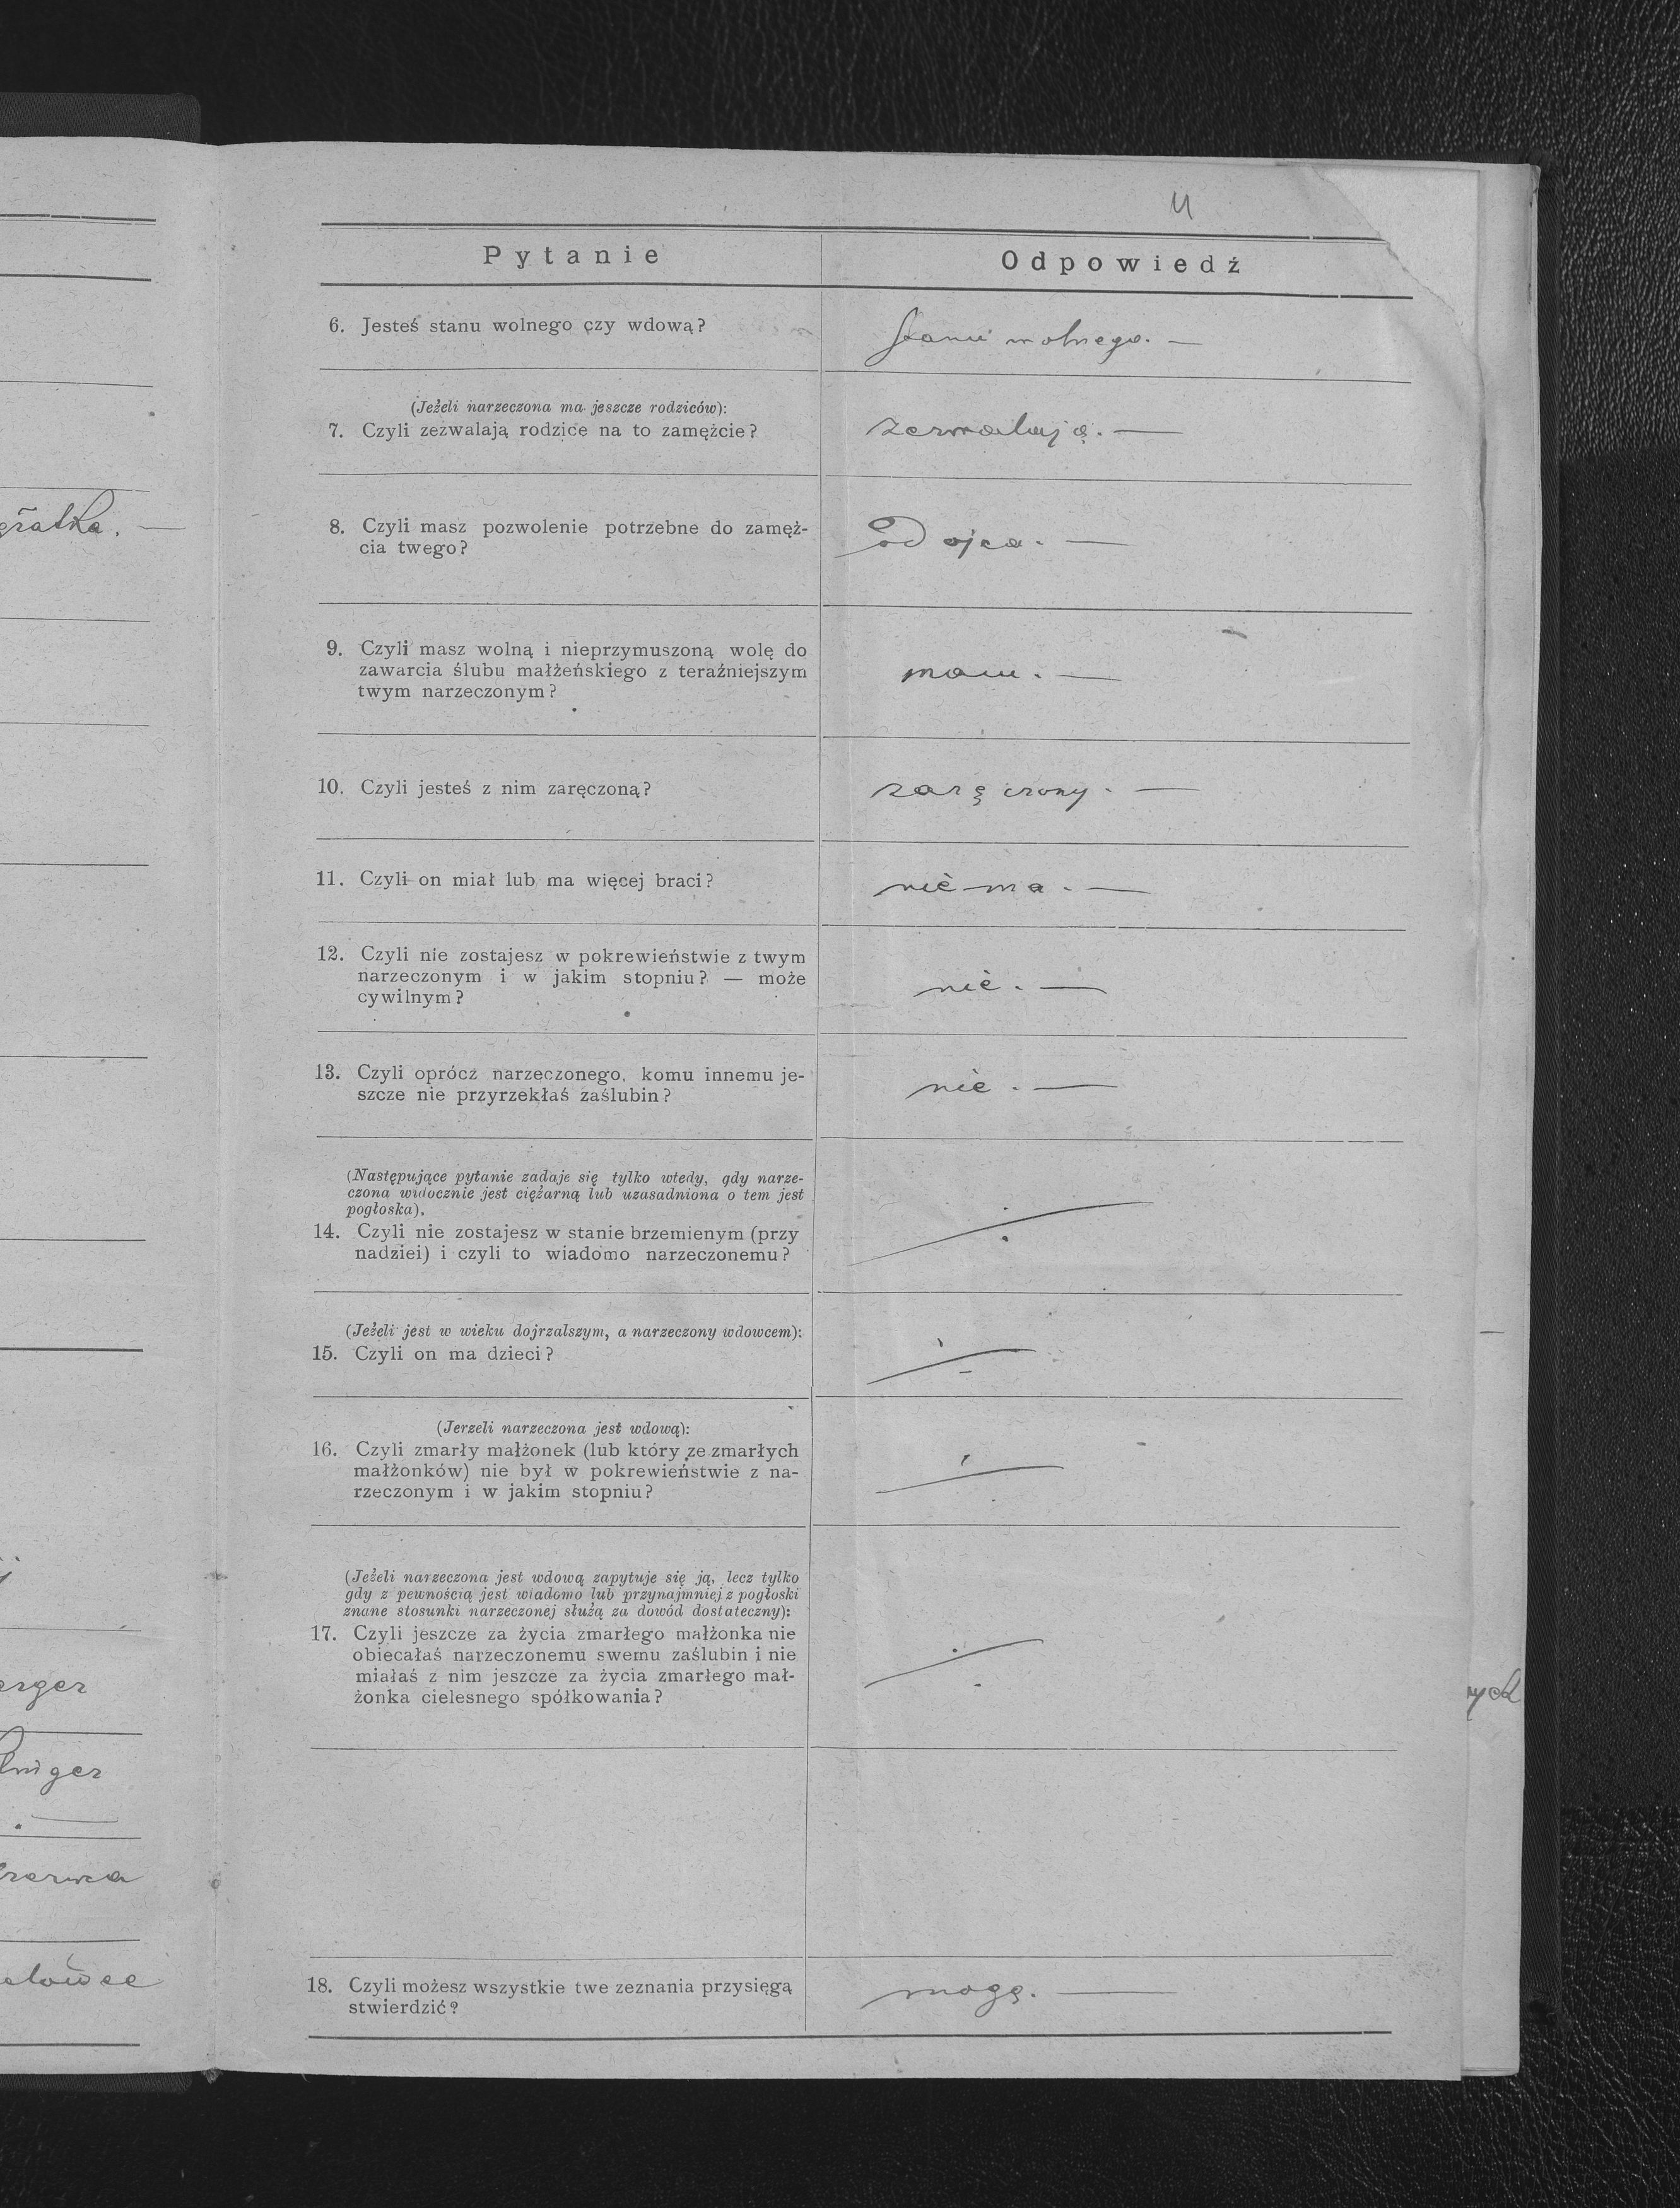 4
Pytanie
Odpowiedź
6. Jesteś stanu wolnego czy wdową?
Stanu wolnego. —
(Jeżeli narzeczona ma jeszcze rodziców):
7. Czyli zezwalają rodzice na to zamężcie?
zezwalają. —
8. Czyli masz pozwolenie potrzebne do zamęż-
cia twego?
Od ojca. —
9. Czyli masz wolną i nieprzymuszoną wolę do
zawarcia ślubu małżeńskiego z teraźniejszym
twym narzeczonym?
mam. —
10. Czyli jesteś z nim zaręczoną?
zaręczony. —
11. Czyli on miał lub ma więcej braci?
nie ma. —
12. Czyli nie zostajesz w pokrewieństwie z twym
narzeczonym i w jakim stopniu? — może
cywilnym?
nie. —
13. Czyli oprócz narzeczonego, komu innemu je-
szcze nie przyrzekłaś zaślubin?
nie. —
(Następujące pytanie zadaje się tylko wtedy, gdy narze-
czona widocznie jest ciężarną lub uzasadniona o tem jest
pogłoska).
14. Czyli nie zostajesz w stanie brzemienym (przy
nadziei) i czyli to wiadomo narzeczonemu?
(Jeżeli jest w wieku dojrzalszym, a narzeczony wdowcem):
15. Czyli on ma dzieci?
(Jerzeli narzeczona jest wdową):
16. Czyli zmarły małżonek (lub który ze zmarłych
małżonków) nie był w pokrewieństwie z na-
rzeczonym i w jakim stopniu?
(Jeżeli narzeczona jest wdową zapytuje się ją, lecz tylko
gdy z pewnością jest wiadomo lub przynajmniej z pogłoski
znane stosunki narzeczonej służą za dowód dostateczny):
17. Czyli jeszcze za życia zmarłego małżonka nie
obiecałaś narzeczonemu swemu zaślubin i nie
miałaś z nim jeszcze za życia zmarłego mał-
żonka cielesnego spółkowania?
18. Czyli możesz wszystkie twe zeznania przysięgą
stwierdzić?
mogę. —